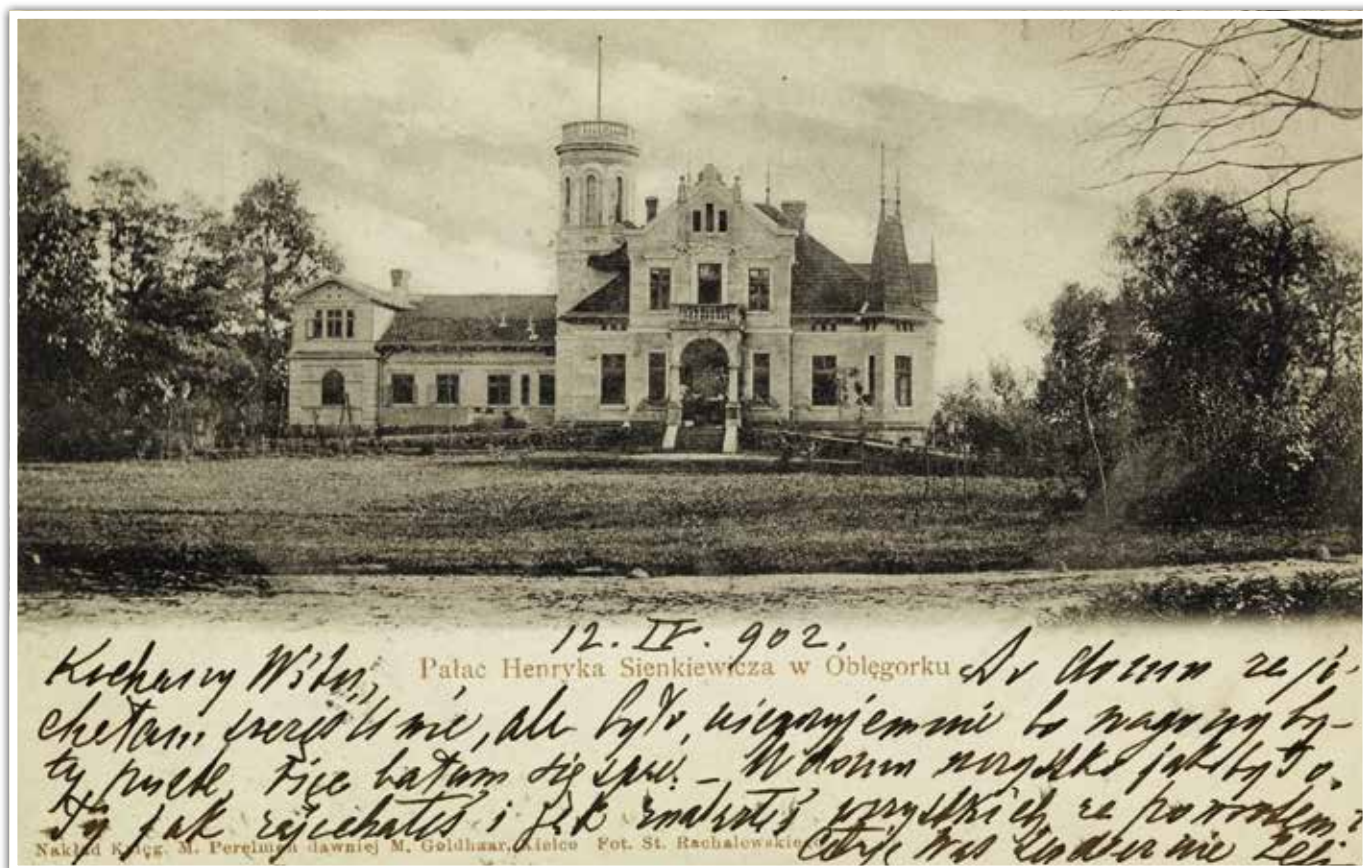 12. IV. 902.
Pałac Henryka Sienkiewicza w Oblęgorku
Kochany Do domu zaje-
chałam szczęśliwie, ale było nieprzyjemnie bo wagony by-
ły puste, więc bałam się spać. – W domu wszystko jak było.
Ty jak zajechałeś i jak znalazłeś wszystkich za powrotem?
Nakład Księg. M. Perelman dawniej M. Goldhaar, Kielce Fot. St. Rachalewskiego
Całuję Was serdecznie